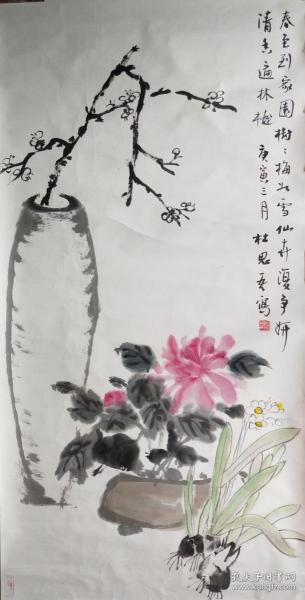 春至到家園樹〻梅如雪仙卉復争妍
清香遍林樾 庚寅三月 杜思寫
孔夫子旧书网